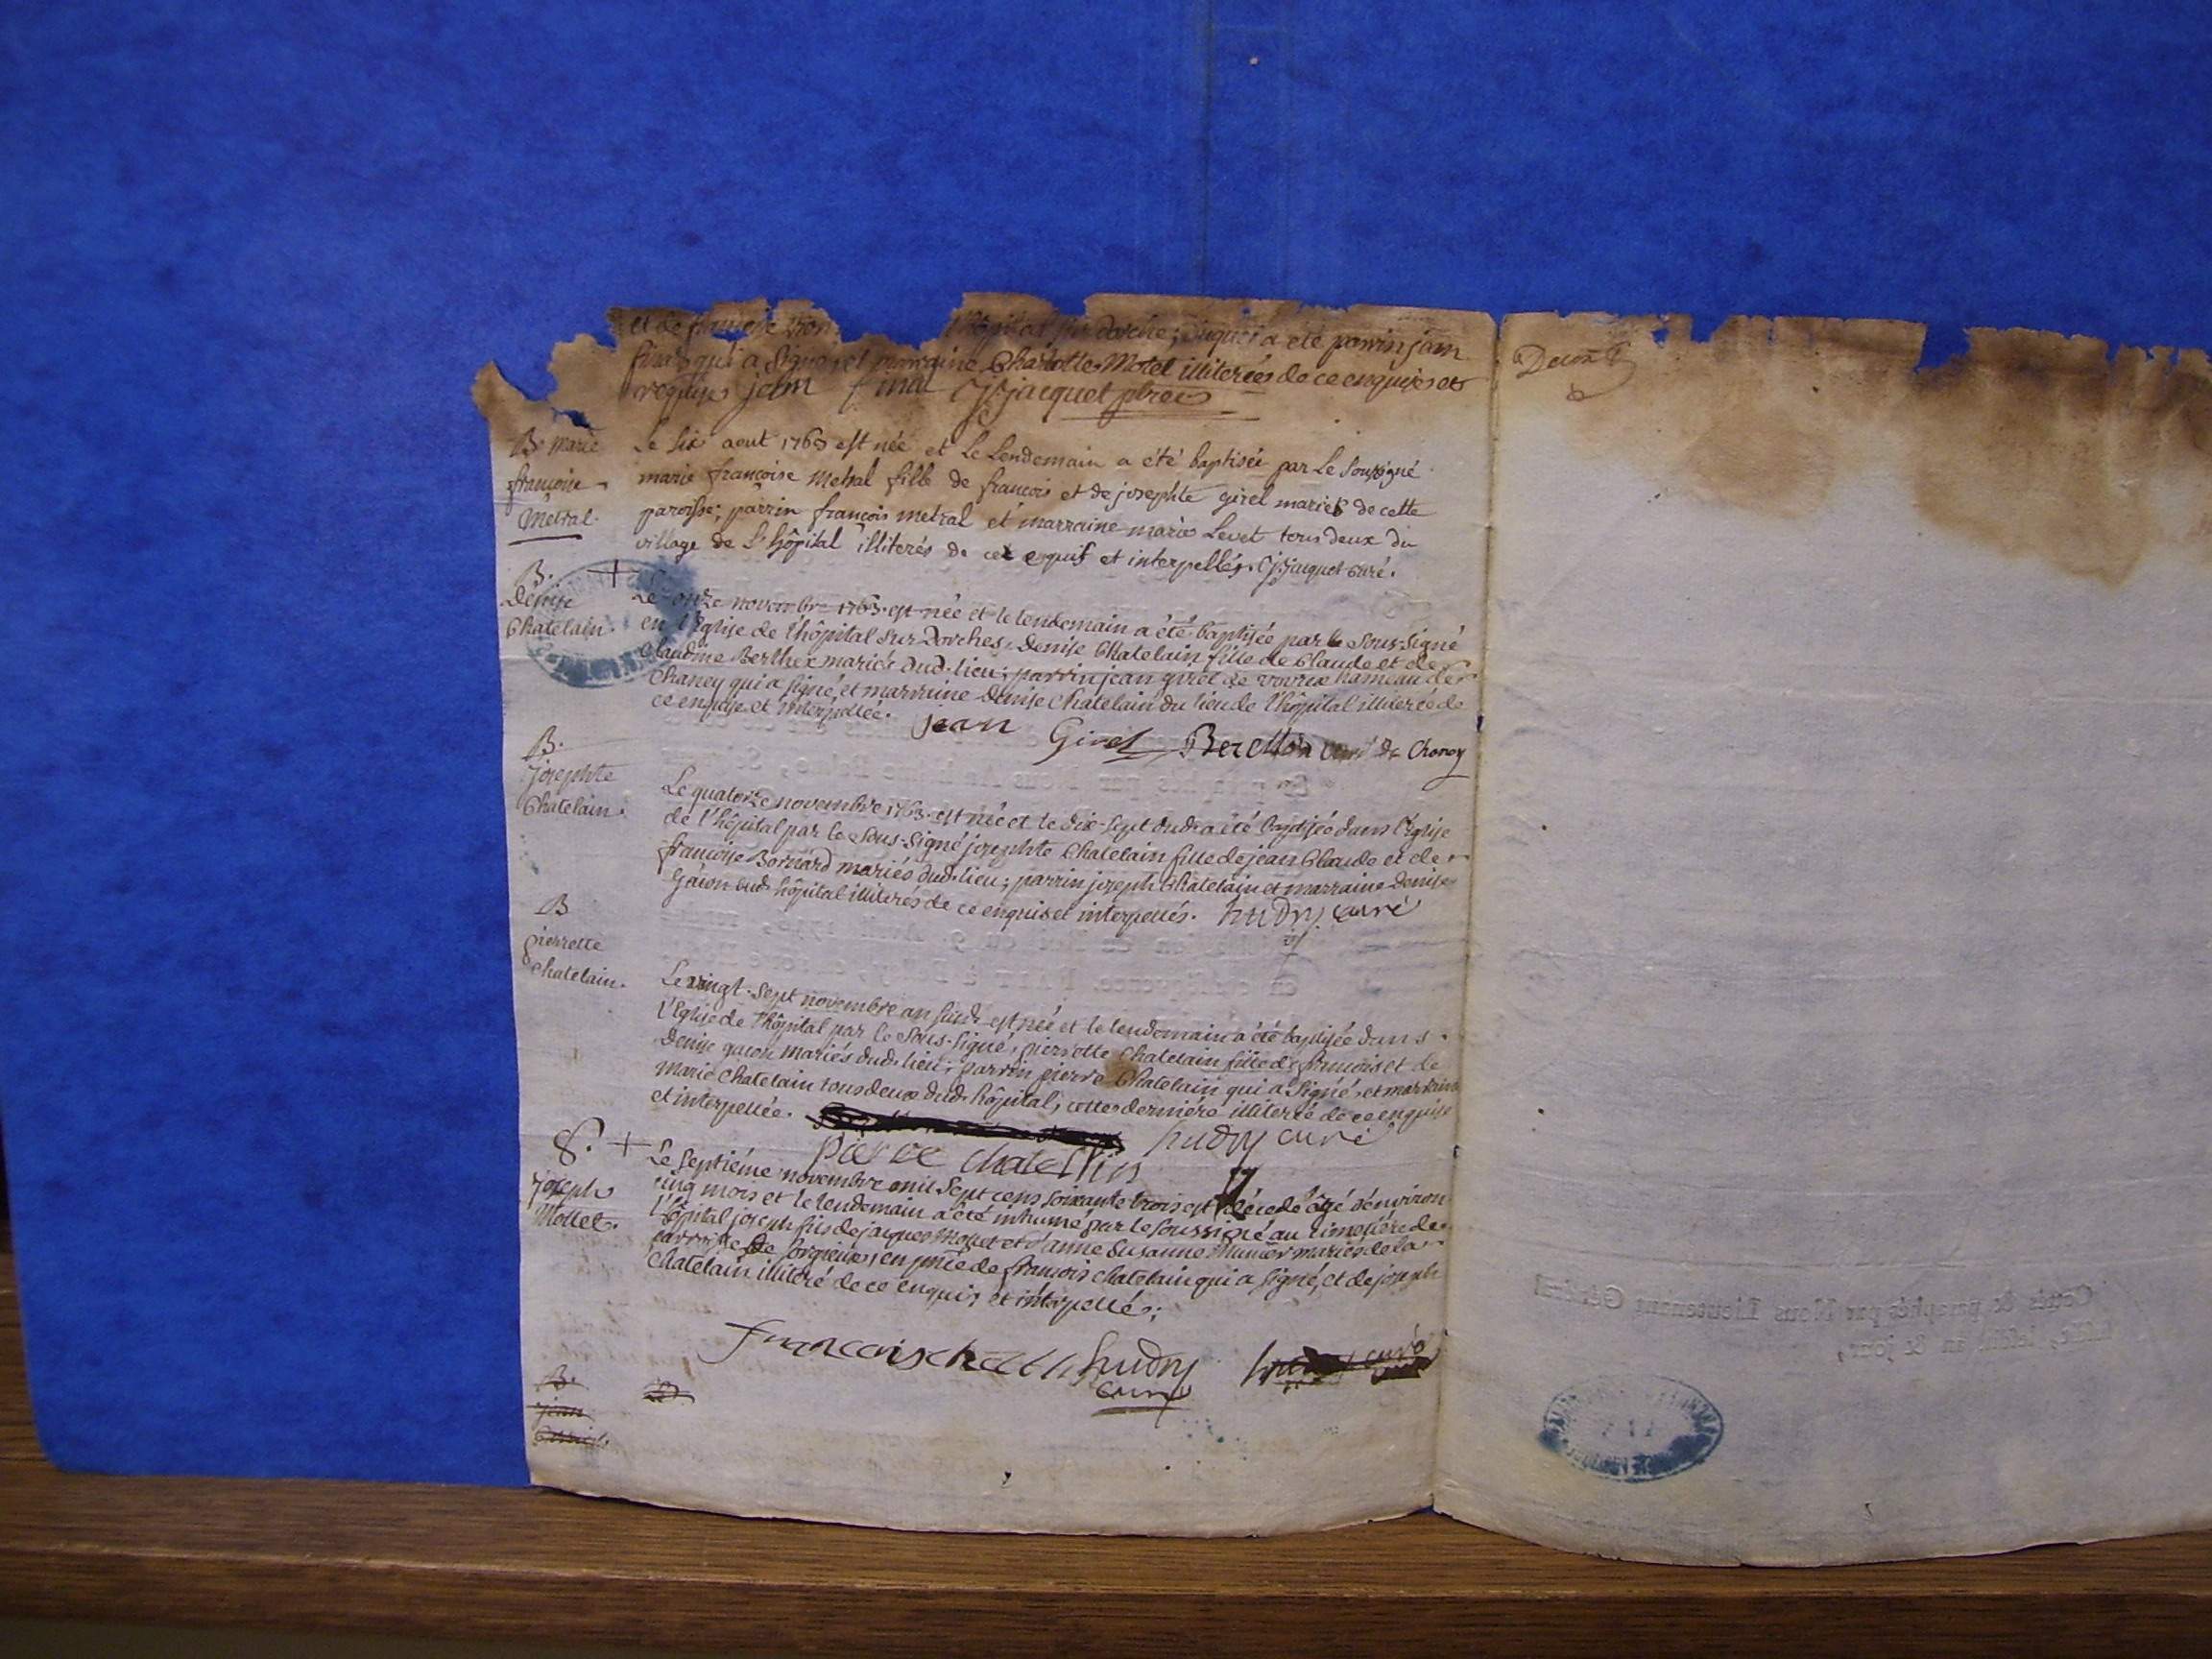 et de françoise
l'hôpital sur dorche; duquel a été parrin jean
finaz qui a signé, et marraine Charlotte Motel illiterées de ce enquises et
requise jean finaz Jpjacquet ptre
B. Marie
françoise
Metral.
Le six aout 1763 est née et Le Lendemain a été baptisée par Le soussigné
marie françoise Metral fille de francois et de josephte girel mariés de cette
paroisse; parrin françois metral et marraine marie Levet tous deux du
village de L'hôpital illiterés de ce enquis et interpellés. Jpjacquet curé.
B. +
Denise
Chatelain.
Le onze novembre 1763 est née et le lendemain a été baptisée par le sous-signé
en l'Eglise de l'hôpital sur Dorches, Denise Chatelain fille de Claude et de
Claudine Berthet mariés dud. lieu; parrin jean girel de vovrex hameau de
Chaney qui a signé, et marraine Denise Chatelain du lieu de l'hôpital illiterée de
ce enquise et interpellée. jean Girel curé de Chaney
B.
josephte
Chatelain.
Le quatorze novembre 1763 est née et le dix-sept dud. a été baptisée dans l'Eglise
de l'hôpital par le sous-signé josephte Chatelain fille de jean Claude et de
françoise Bornard mariés dud. lieu; parrin joseph Chatelain et marraine Denise
gaion dud. hôpital illiterés de ce enquis et interpellés. hudry curé
B
pierrette
Chatelain.
Le vingt-sept novembre an susd. est née et le lendemain a été baptisée dans
l'Eglise de l'hôpital par le sous-signé, pierrette Chatelain fille de françois et de
Denise gaion mariés dud. lieu; parrin pierre Chatelain qui a signé, et marraine
marie Chatelain tous deux dud. hôpital, cette derniére illiterée de ce enquise
et interpellée. hudry curé
pierre chatelain
S. +
joseph
Mollet.
Le septiéme novembre mil sept cens soixante trois est décedé âgé d'environ
cinq mois et le lendemain a été inhumé par le soussigné au cimetiére de
l'hôpital joseph fils de jacques Mollet et d'anne Susanne mariés de la
parroisse de en pnce de françois Chatelain qui a signé, et de joseph
Chatelain illiteré de ce enquis et interpellés;
francois hudry
curé
curé
B.
jean
Deux
Cotté & paraphé par Nous Lieutenant Général
an & jour,